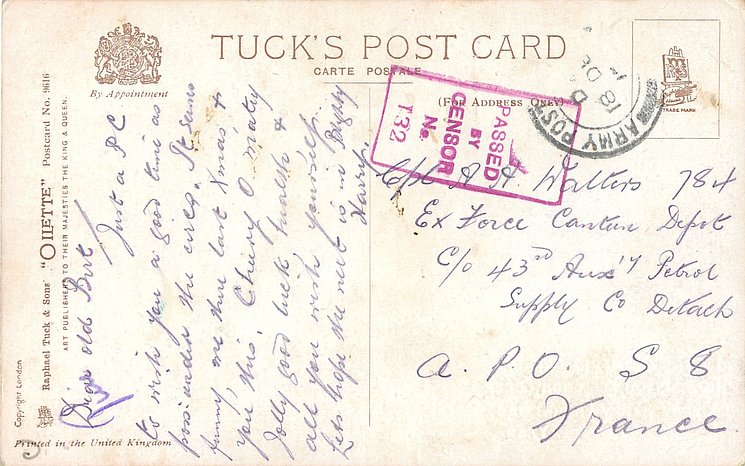 TUCK'S POST CARD
CARTE POSTALE
(FOR ADDRESS ONLY)
By Appointment
TRADE MARK
Raphael Tuck & Sons' "OILETTE" Postcard No. 9616
ART PUBLISHERS TO THEIR MAJESTIES THE KING & QUEEN.
Copyright London
Printed in the United Kingdom
PASSED
BY
CENSOR
No.
132
ARMY POST
18 DE
Dear old Bert
Just a PC
to wish you a good time as
poss under the circs. It seems
funny, me there last Xmas &
you this. Cheery O matey
Jolly good luck health &
all you wish yourself.
Lets hope the next is in Blighty
Harry.
Cpl A. H. Walters 784
Ex Force Canteen Depot
C/o 43rd Aux'y Petrol
Supply Co Detach
A. P. O. S 8
France.